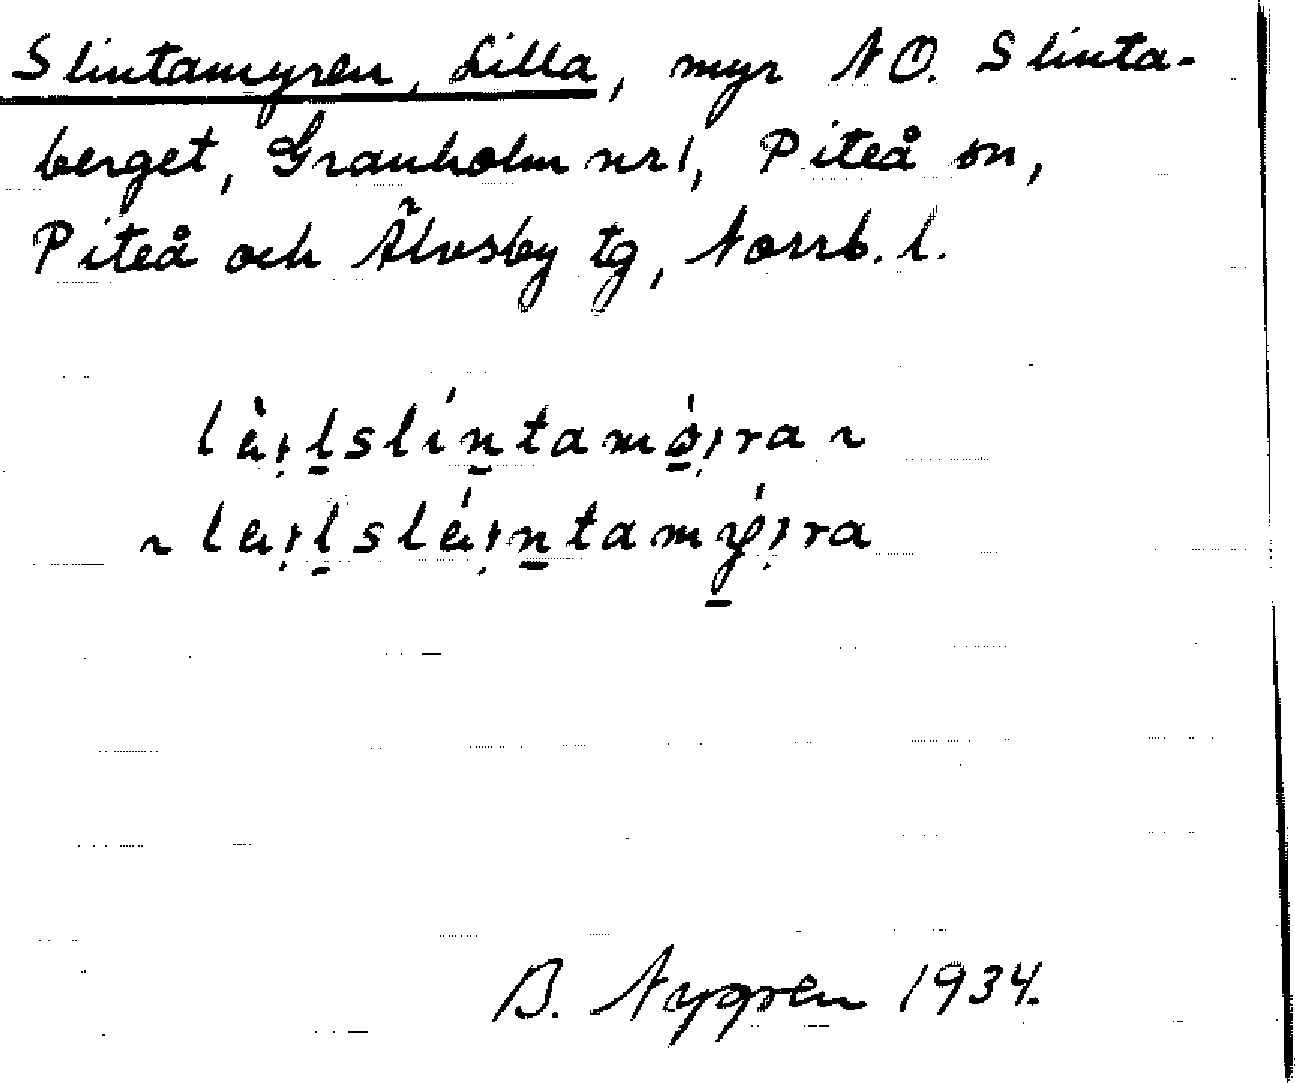 Slintamyren, Lilla, myr NO. Slinta-
berget, Granholm nr 1, Piteå sn,
Piteå och Älvsby tg, Norrb. l.
lèi̯l̠slín̠tamǿ̠i̯ra ~
~ lei̯l̠sléi̯n̠tamý̠i̯ra
B. Nygren 1934.